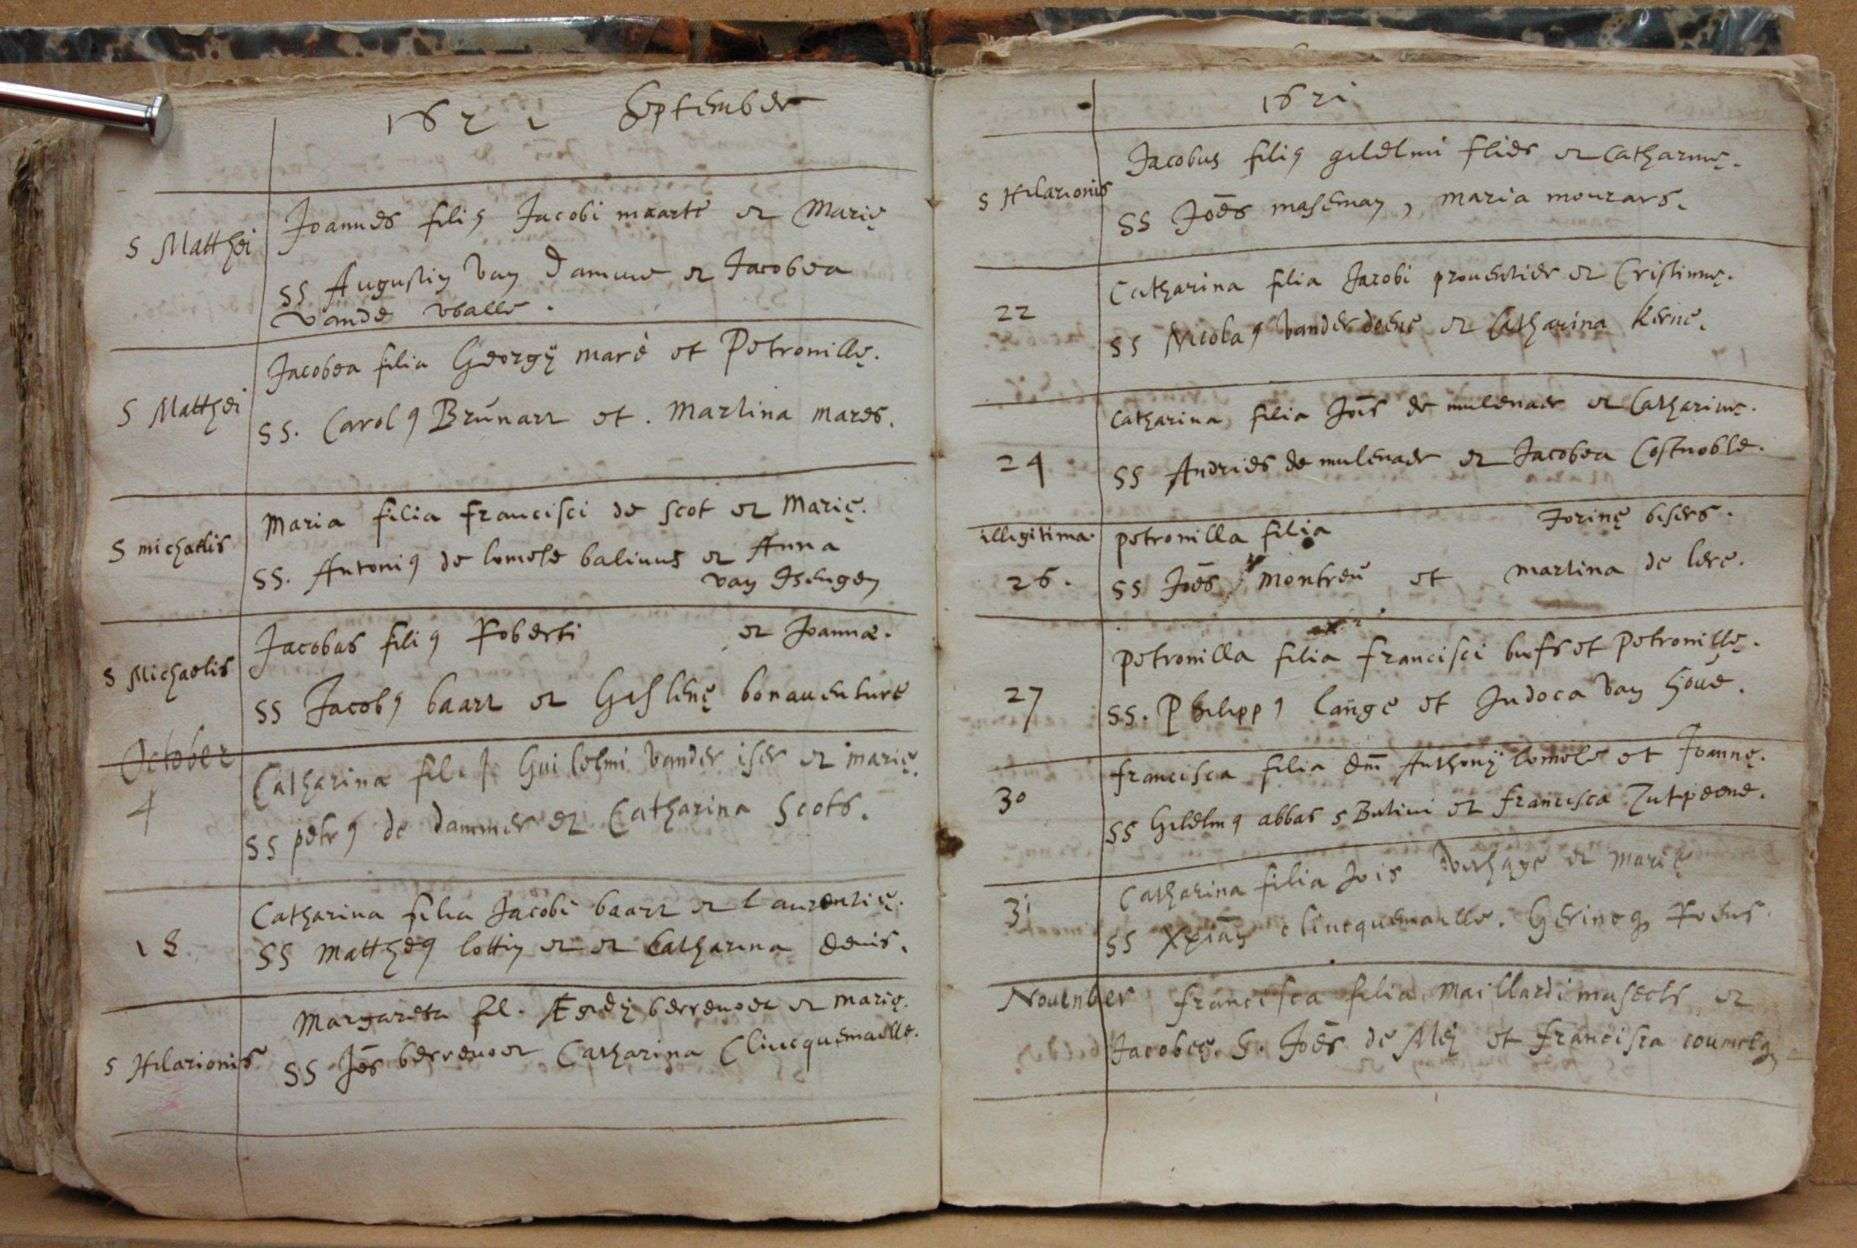 1621 September
S Matthei
Joannes filiꝰ Jacobi maarte et Marię
SS Augustin Van Damme et Jacobea
Vande Walle.
S Matthei
Jacobea filia Georgij marè et Petronillę.
SS. Carolꝰ Brunart et. Martina mares.
S michaelis
Maria filia francisci de scot et Marię.
SS. Antoniꝰ de lomele balivus et Anna
van Isengen
S Michaelis
Jacobus filiꝰ Roberti et Joannæ.
SS Jacobꝰ baart et Gislenę bonaventure
October
4
Catharina filia Guilelmi vander iser et marię.
SS petrꝰ de dammer et Catharina Scots.
18.
Catharina filia Jacobi baart et Laurentię.
SS Mattheꝰ lottin et et Catharina denis.
S Hilarionis
Margareta fil. Ægidij berrevoet et marię.
SS Jōes berrevoet Catharina Cliucquemaille.
1621
S Hilarionis
Jacobus filiꝰ gulelmi flies et Catharinę.
SS Joēs maseman, maria mourars.
22
Catharina filia Jacobi provensier et Cristinnę.
SS Nicolaꝰ Vander doene et Catharina Kerne.
24
Catharina filia Joīs de mulenaer et Catharinę.
SS Andries de mulenaer et Jacobea Costnoble.
illegitima.
26.
petronilla filia Jorinę bisers.
SS Joēs montreu et martina de lere.
27
Petronilla filia francisci bufs et Petronillę.
SS. Philippꝰ lange et Judoca Van Hove.
30
francisca filia dm̄ Anthonij lomele et Joannę.
SS Gulelmꝰ abbas s Butini et francisca Zutpeene.
31
Catharina filia Jois verhage et marię
SS xpiān cliucquemaille. Roens.
November
francisca filia Maillardi musects et
Jacobeę. S. Joēs de Meij et francisca